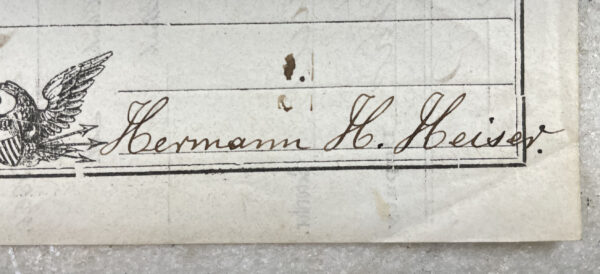 Hermann H. Heiser.